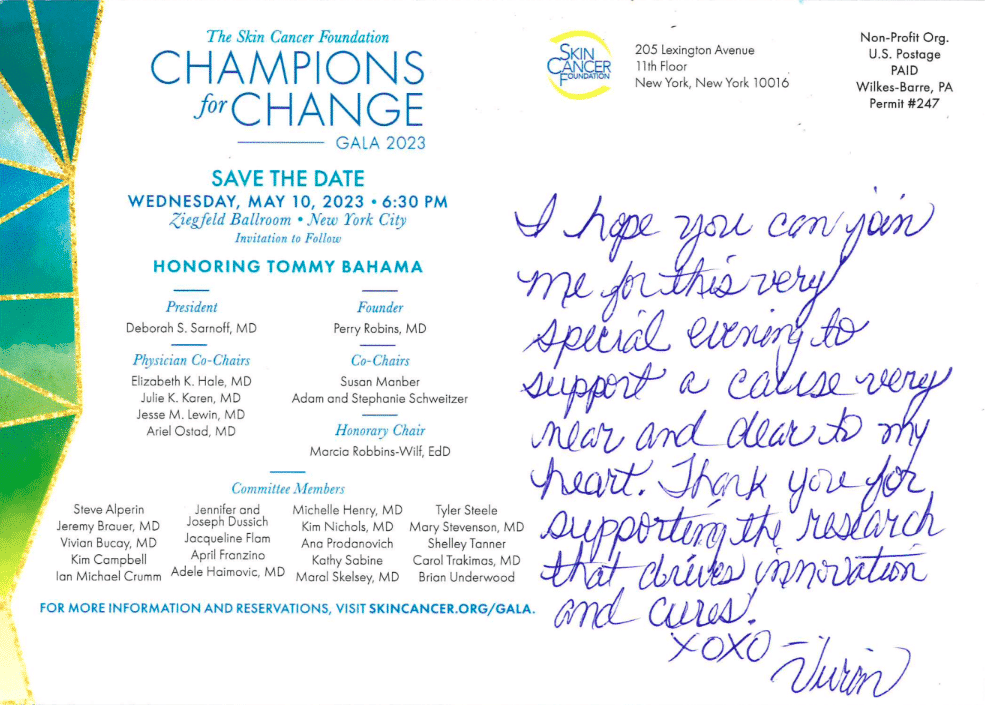 The Skin Cancer Foundation
CHAMPIONS
for CHANGE
GALA 2023
SAVE THE DATE
WEDNESDAY, MAY 10, 2023 • 6:30 PM
Ziegfeld Ballroom • New York City
Invitation to Follow
HONORING TOMMY BAHAMA
President
Deborah S. Sarnoff, MD
Founder
Perry Robins, MD
Physician Co-Chairs
Elizabeth K. Hale, MD
Julie K. Karen, MD
Jesse M. Lewin, MD
Ariel Ostad, MD
Co-Chairs
Susan Manber
Adam and Stephanie Schweitzer
Honorary Chair
Marcia Robbins-Wilf, EdD
Committee Members
Steve Alperin
Jeremy Brauer, MD
Vivian Bucay, MD
Kim Campbell
Ian Michael Crumm
Jennifer and
Joseph Dussich
Jacqueline Flam
April Franzino
Adele Haimovic, MD
Michelle Henry, MD
Kim Nichols, MD
Ana Prodanovich
Kathy Sabine
Maral Skelsey, MD
Tyler Steele
Mary Stevenson, MD
Shelley Tanner
Carol Trakimas, MD
Brian Underwood
FOR MORE INFORMATION AND RESERVATIONS, VISIT SKINCANCER.ORG/GALA.
SKIN
CANCER
FOUNDATION
205 Lexington Avenue
11th Floor
New York, New York 10016
Non-Profit Org.
U.S. Postage
PAID
Wilkes-Barre, PA
Permit #247
I hope you can join
me for this very
special evening to
support a cause very
near and dear to my
heart. Thank you for
supporting the research
that drives innovation
and cures!
XOXO –
Vivian